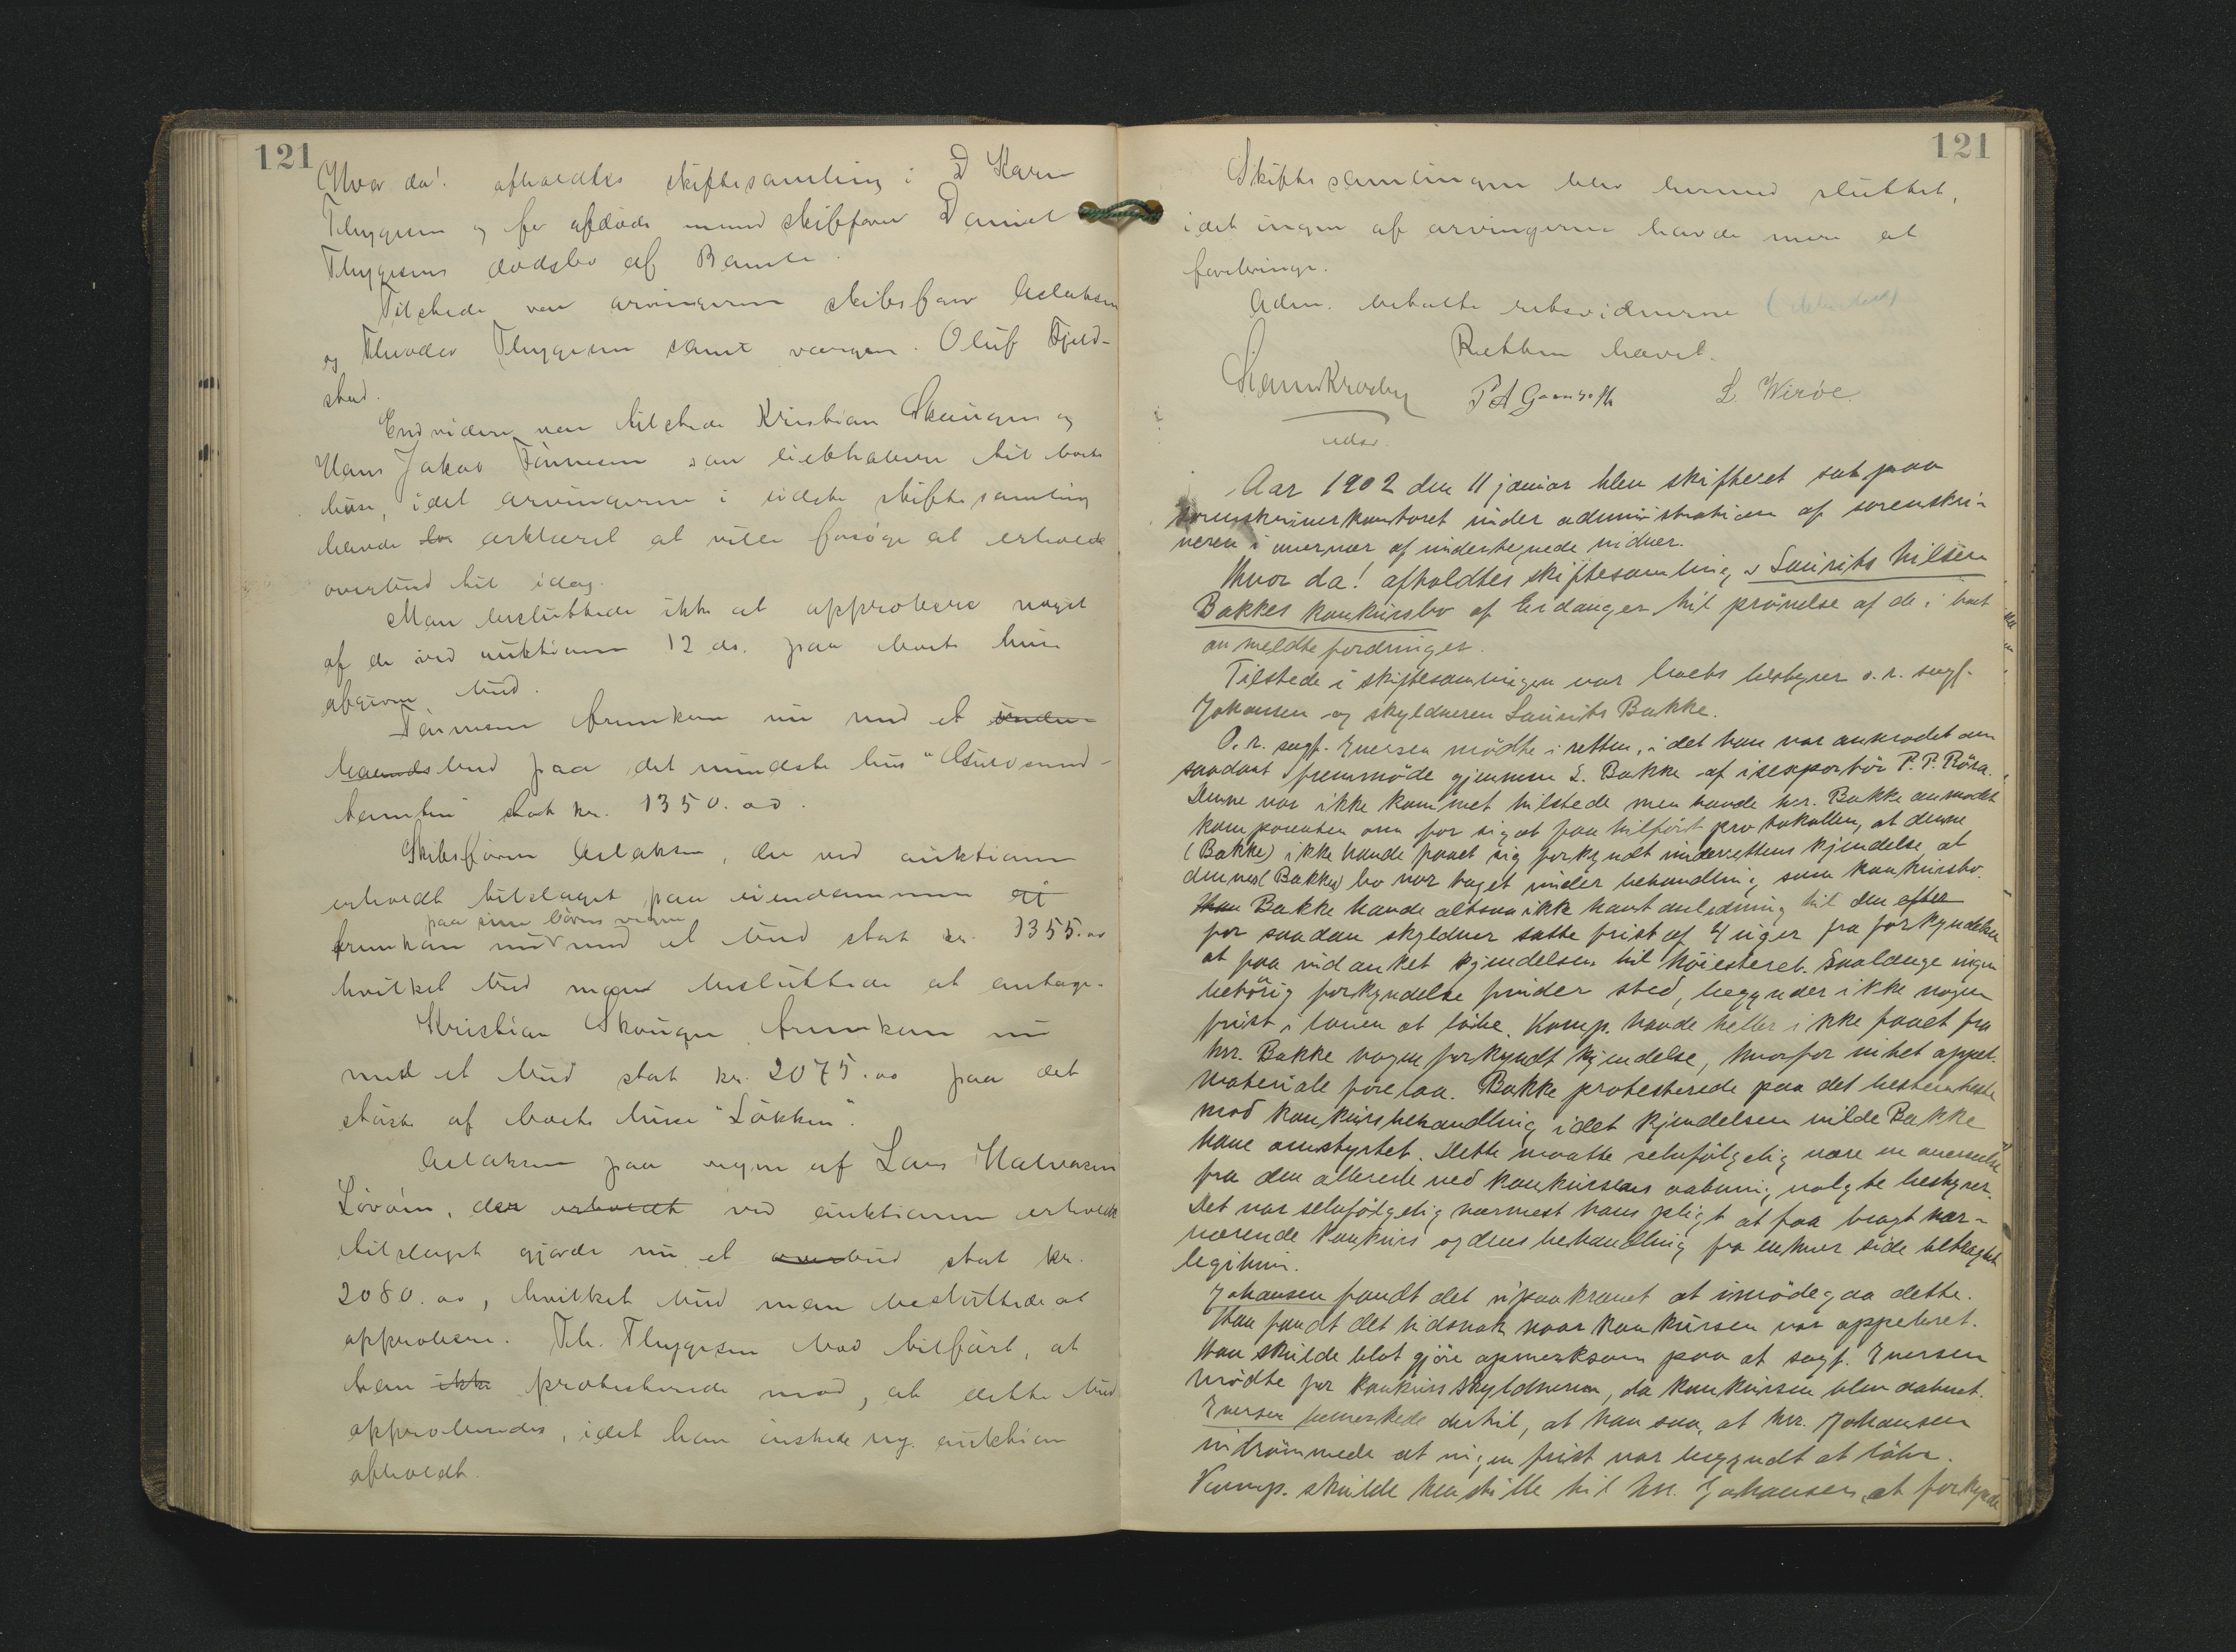 121
Hvor da! afholdtes skiftesamling i D Karen
Thygesen og før afdøde mand skibsfører Daniel
Thygesens dødsbo af Bamle.
Tilstede var arvingerne skibsfører Aslaksen
og Theodor Thygesen samt værgen Oluf Fjeld-
stad.
Endvidere var tilstede Kristian Skaugen og
Hans Jakob Tönnesen som liebhavere til boets
huse, idet arvingerne i sidste skiftesamling
havde erklæret at ville forsøge at erholde
overbud til idag.
Man besluttede ikke at approbere noget
af de ved auktionen 12 ds. paa boets huse
afgivne bud.
Tönnesen fremkom nu med et under-
haandsbud paa det mindste hus
stort kr. 1350.00.
Skibsfører Aslaksen, der ved auktionen
erholdt tilslaget paa eiendommen
paa sine börns vegne
fremkom nu med et bud stort kr. 1355.00
hvilket bud man besluttede at antage.
Kristian Skaugen fremkom nu
med et bud stort kr. 2075.00 paa det
störste af boets huse "Lökken".
Aslaksen paa vegne af Lars Halvorsen
der erholdt ved auktionen erholdt
tilslaget gjorde nu et overbud stort kr.
2080.00, hvilket bud man besluttede at
approbere. Th. Thygesen bad tilfört, at
han ikke protesterede mod, at dette bud
approberedes, idet han önskede ny auktion
afholdt.
121
Skiftesamlingen blev hermed sluttet,
idet ingen af arvingerne havde mere at
forebringe.
Adm. betalte retsvidnerne
Retten hævet.
L. Wiröe
udsr.
Aar 1902 den 11 januar blev skifteret sat paa
sorenskriverkontoret under administration af sorenskri-
veren i nærvær af undertegnede vidner.
Hvor da! afholdtes skiftesamling i Laurits Nilsen
Bakkes konkursbo af Eidanger til prövelse af de i boet
anmeldte fordringer.
Tilstede i skiftesamlingen var boets bestyrer o.r. sagf.
Johansen og skyldneren Laurits Bakke.
O.r. sagf. Iversen mödte i retten, idet han var anmodet om
saadant fremmöde gjennem L. Bakke af iseksportör P.P. Röra.
Denne var ikke kommet tilstede men havde hr. Bakke anmodet
komparenten om for sig at faa tilfört protokollen, at denne
(Bakke) ikke havde faaet sig forkyndt underrettens kjendelse at
dennes (Bakkes) bo var taget under behandling som konkursbo.
Han Bakke havde altsaa ikke havt anledning til den efter
for saadan skyldner satte frist af 4 uger fra forkyndelsen
at faa indanket kjendelsen til höiesteret. Saalænge ingen
behörig forkyndelse finder sted, begynder ikke nogen
frist i loven at löbe. Komp. havde heller ikke faaet fra
hr. Bakke nogen forkyndt kjendelse, hvorfor intet appel-
materiale forelaa. Bakke protesterede paa det bestemteste
mod konkursbehandling idet kjendelsen vilde Bakke
have omstyrtet. Dette maatte selvfölgelig være en overseelse
fra den allerede ved konkursens aabning valgte bestyrer.
Det var selvfölgelig nærmest hans pligt at faa bragt nær-
værende konkurs og dens behandling fra enhver side betragtet
legitim.
Johansen fandt det upaakrævet at imödegaa dette.
Han fandt det tidsnok naar konkursen var appelleret.
Han skulde blot gjöre opmerksom paa at sagf. Iversen
mödte for konkursskyldneren, da konkursen blev aabnet.
Iversen bemerkede dertil, at han saa, at hr. Johansen
indrömmede at ingen frist var begyndt at löbe.
Komp. skulde henstille til hr. Johansen at forkynde